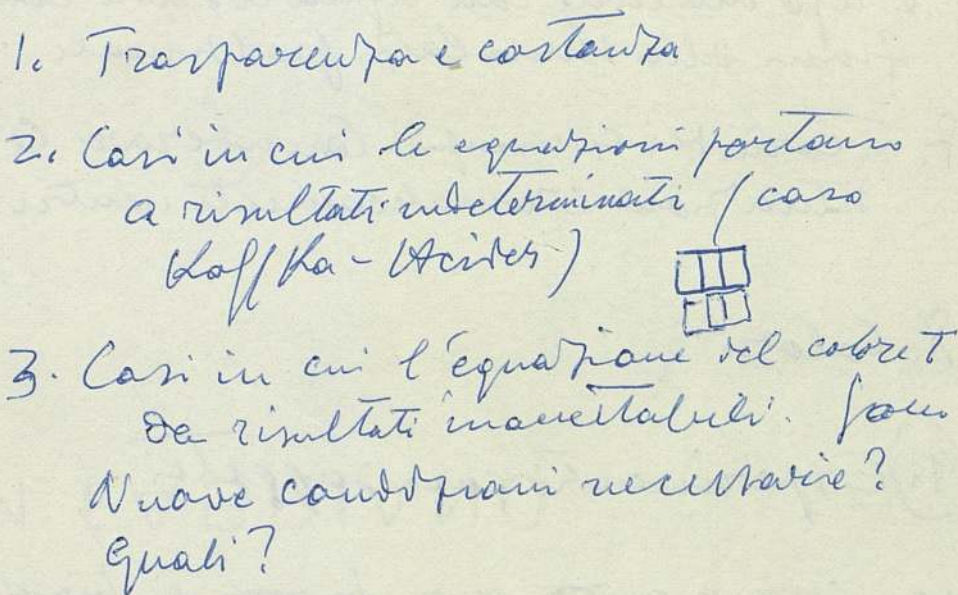 1. Trasparenza e costanza
2. Casi in cui le equazioni portano
a risultati indeterminati (caso
Koffka - Heider)
3. Casi in cui l'equazione del colore T
da risultati inaccettabili.
Nuove condizioni necessarie?
Quali?